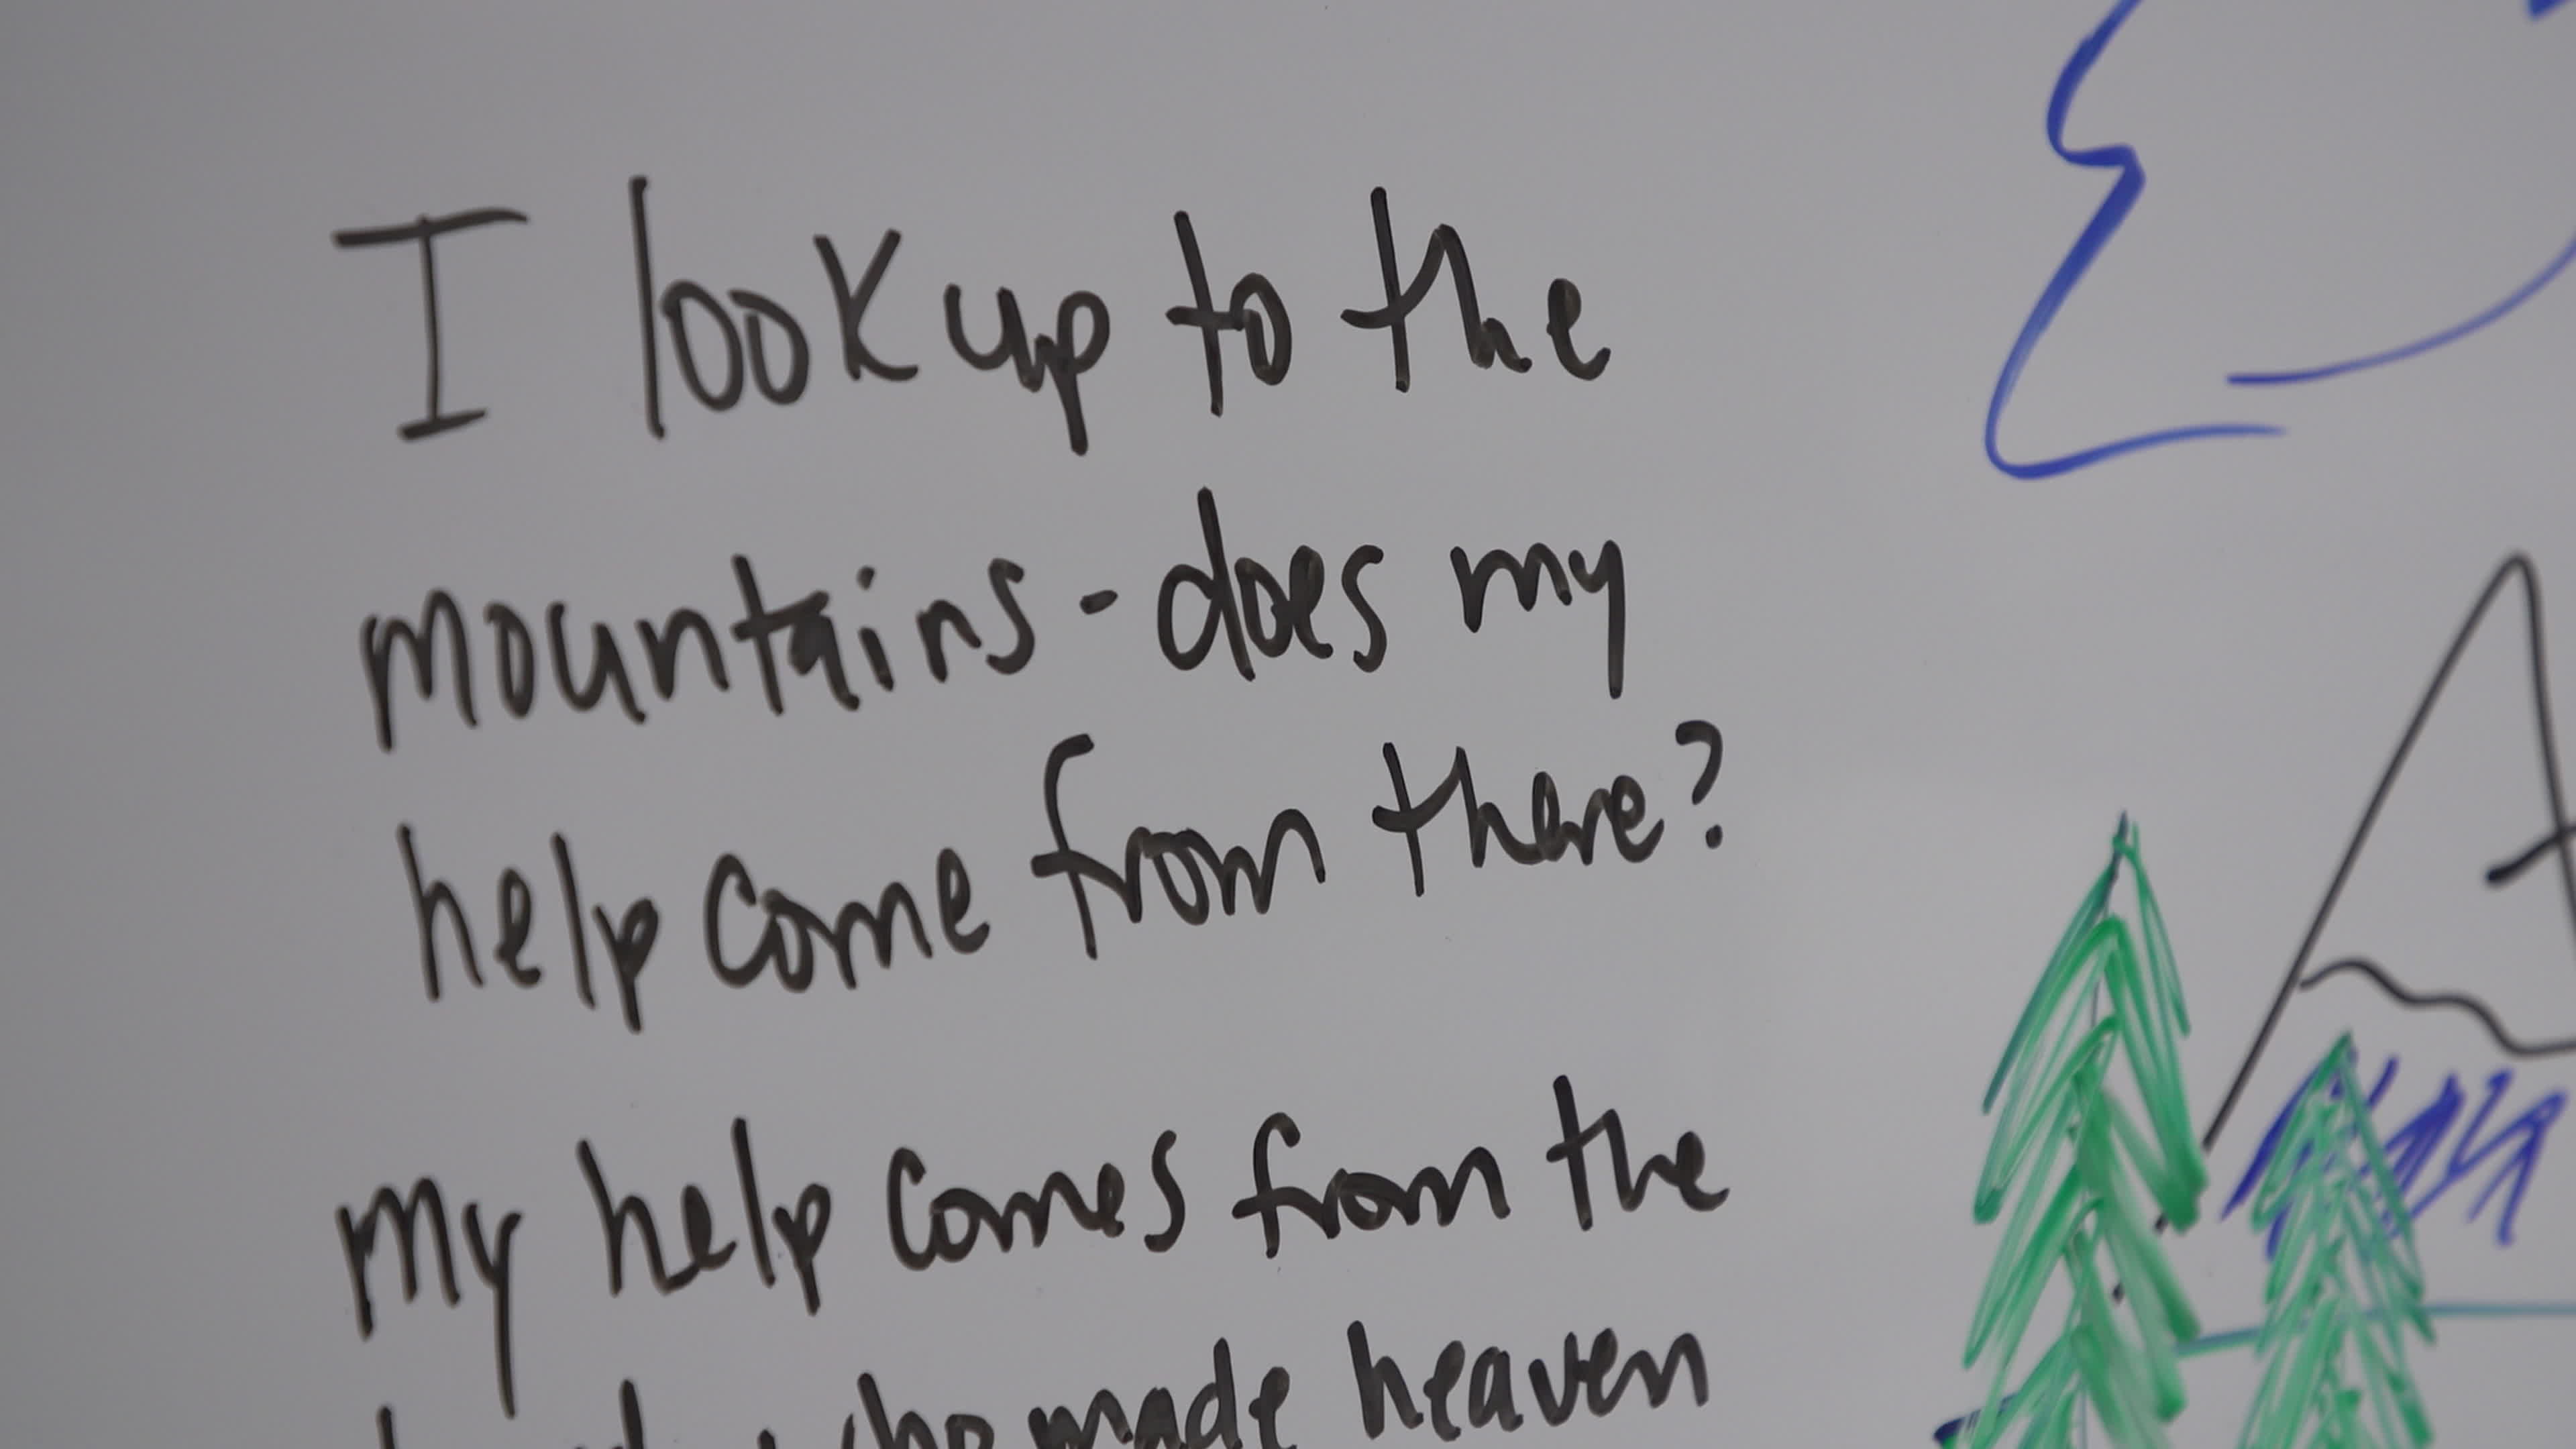 I look up to the
mountains - does my
help come from there?
my help comes from the
who made heaven